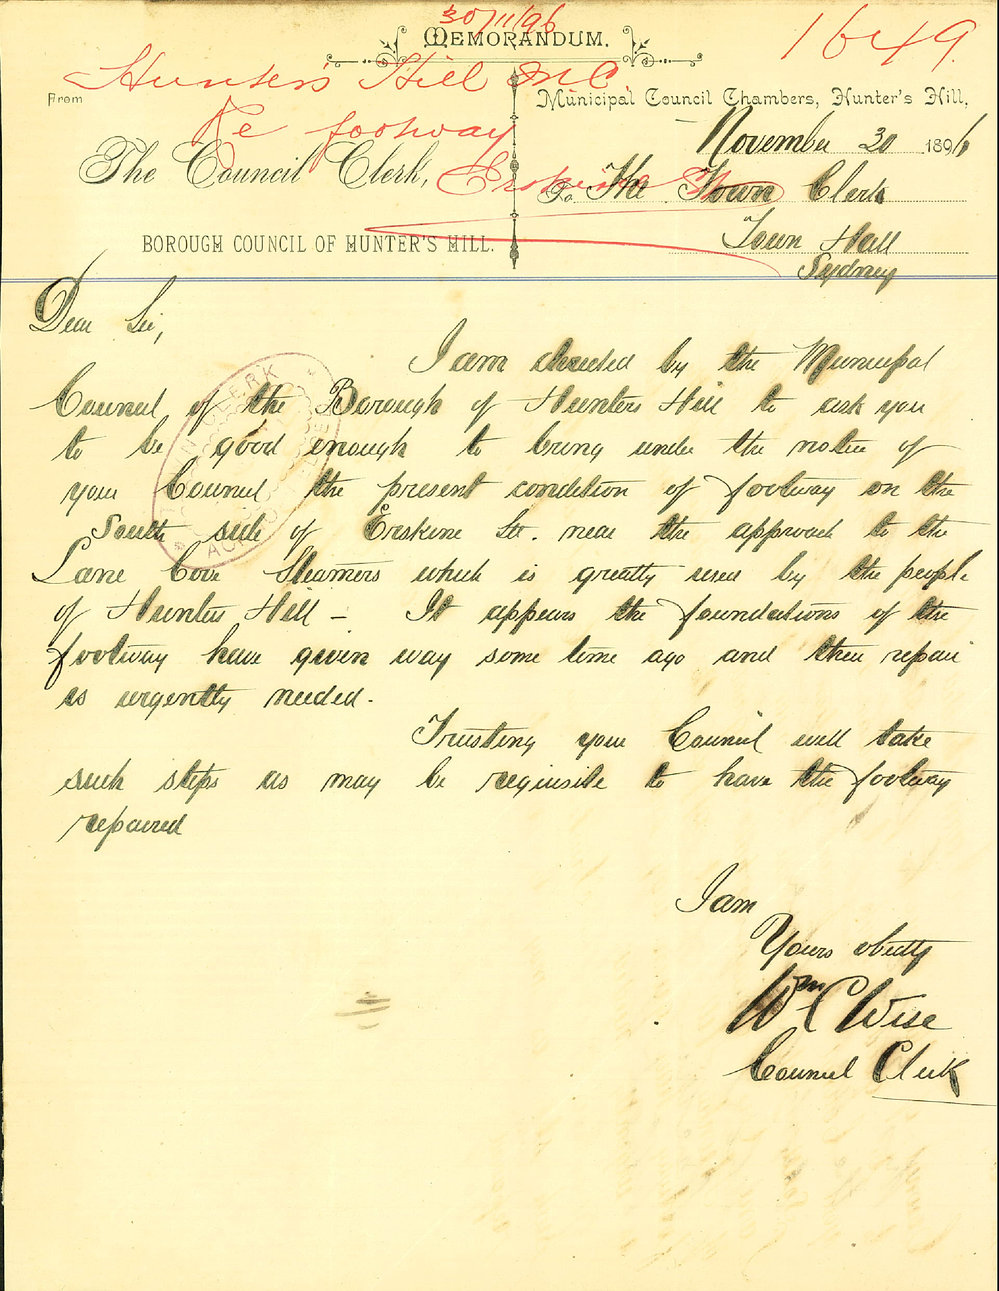 30/11/96
MEMORANDUM.
1649
Hunter's Hill M C
From
Municipal Council Chambers, Hunter's Hill,
Re footway
November 30 1896
The Council Clerk,
Erskine St
To The Town Clerk
BOROUGH COUNCIL OF HUNTER'S HILL.
Town Hall
Sydney
Dear Sir,
I am directed by the Municipal
Council of the Borough of Hunters Hill to ask you
to be good enough to bring under the notice of
your Council the present condition of footway on the
South side of Erskine St. near the approach to the
Lane Cove Steamers which is greatly used by the people
of Hunters Hill – It appears the foundations of the
footway have given way some time ago and their repair
is urgently needed.
Trusting your Council will take
such steps as may be requisite to have the footway
repaired
I am
Yours obedtly
Wm C Wise
Council Clerk
TOWN CLERK